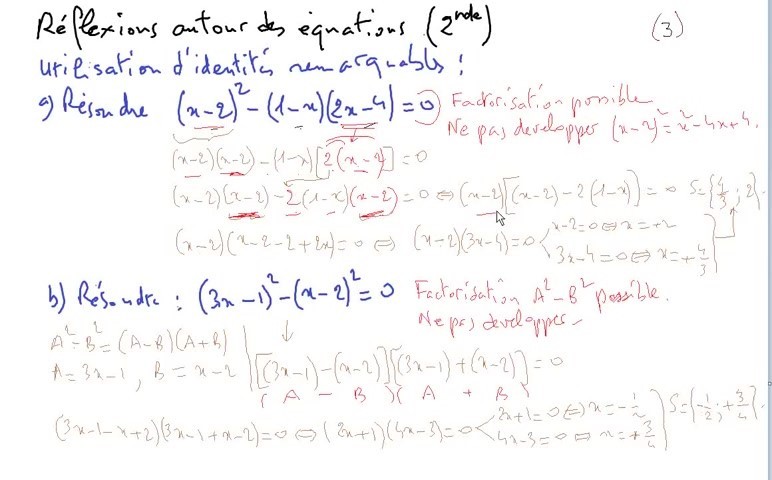 Réflexions autour des équations (2nde) (3)
utilisation d'identités remarquables :
a) Résoudre (x-2)² - (1-x)(2x-4) = 0 Factorisation possible
Ne pas developper (x-2)² = x² - 4x + 4.
(x-2)(x-2) - (1-x)[2(x-2)] = 0
(x-2)(x-2) - 2(1-x)(x-2) = 0 ⇔ (x-2)[(x-2) - 2(1-x)] = 0 S = {4/3 ; 2}.
(x-2)(x-2-2+2x) = 0 ⇔ (x-2)(3x-4) = 0 < x-2=0 ⇔ x=+2
3x-4=0 ⇔ x=+4/3
b) Résoudre : (3x-1)² - (x-2)² = 0 Factorisation A²-B² possible.
Ne pas developper.
A²-B² = (A-B)(A+B)
A = 3x-1, B = x-2 [(3x-1)-(x-2)][(3x-1)+(x-2)] = 0
( A - B )( A + B )
(3x-1-x+2)(3x-1+x-2)=0 ⇔ (2x+1)(4x-3)=0 < 2x+1=0 ⇔ x=-1/2 S={-1/2 ; +3/4}.
4x-3=0 ⇔ x=+3/4